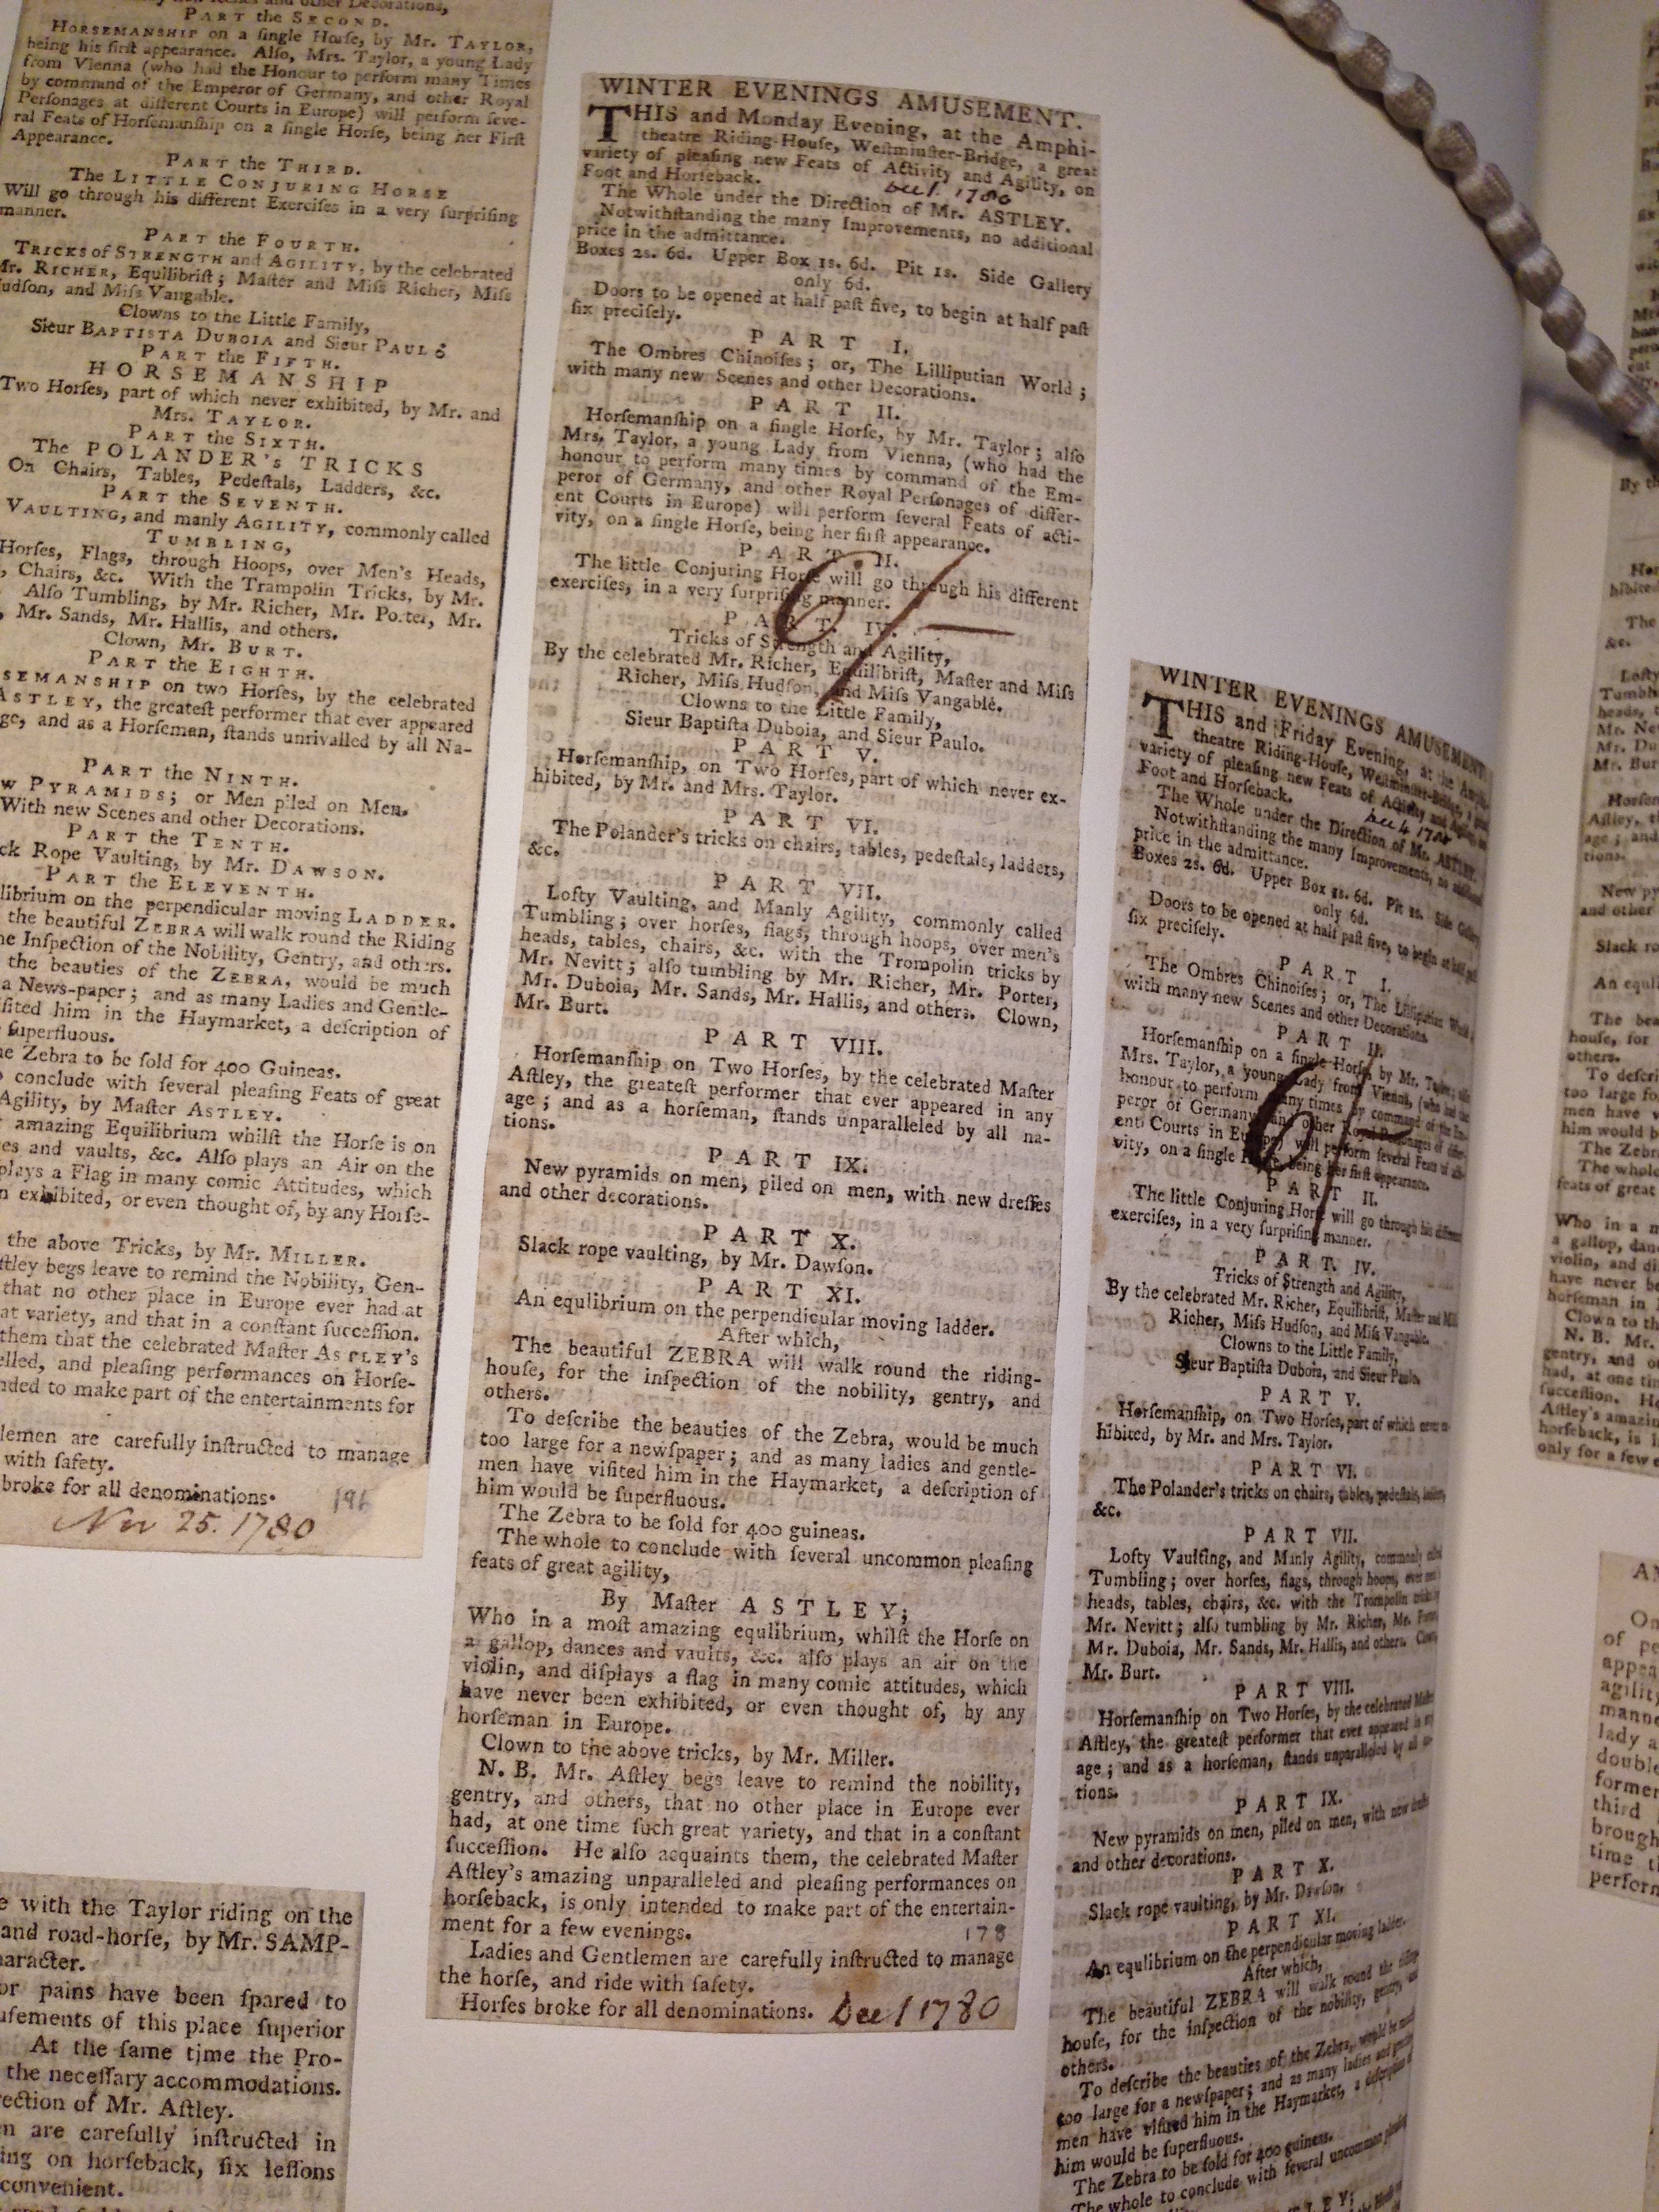 PART the SECOND.
HORSEMANSHIP on a ſingle Horſe, by Mr. TAYLOR,
being his firſt appearance. Alſo, Mrs. Taylor, a young Lady
from Vienna (who had the Honour to perform many Times
by command of the Emperor of Germany, and other Royal
Perſonages at different Courts in Europe) will perform ſeve-
ral Feats of Horſemanſhip on a ſingle Horſe, being her Firſt
Appearance.
PART the THIRD.
The LITTLE CONJURING HORSE
Will go through his different Exerciſes in a very ſurpriſing
manner.
PART the FOURTH.
TRICKS of STRENGTH and AGILITY, by the celebrated
Mr. RICHER, Equilibriſt; Maſter and Miſs Richer, Miſs
udſon, and Miſs Vangable.
Clowns to the Little Family,
Sieur BAPTISTA DUBOIA and Sieur PAULO
PART the FIFTH.
HORSEMANSHIP
Two Horſes, part of which never exhibited, by Mr. and
Mrs. TAYLOR.
PART the SIXTH.
The POLANDER's TRICKS
On Chairs, Tables, Pedeſtals, Ladders, &c.
PART the SEVENTH.
VAULTING, and manly AGILITY, commonly called
TUMBLING,
Horſes, Flags, through Hoops, over Men's Heads,
, Chairs, &c. With the Trampolin Tricks, by Mr.
Alſo Tumbling, by Mr. Richer, Mr. Porter, Mr.
, Mr. Sands, Mr. Hallis, and others.
Clown, Mr. BURT.
PART the EIGHTH.
SEMANSHIP on two Horſes, by the celebrated
ASTLEY, the greateſt performer that ever appeared
ge, and as a Horſeman, ſtands unrivalled by all Na-
PART the NINTH.
w PYRAMIDS; or Men piled on Men.
With new Scenes and other Decorations.
PART the TENTH.
ck Rope Vaulting, by Mr. DAWSON.
PART the ELEVENTH.
librium on the perpendicular moving LADDER.
the beautiful ZEBRA will walk round the Riding
he Inſpection of the Nobility, Gentry, and others.
the beauties of the ZEBRA, would be much
a News-paper; and as many Ladies and Gentle-
ſited him in the Haymarket, a deſcription of
ſuperfluous.
he Zebra to be ſold for 400 Guineas.
o conclude with ſeveral pleaſing Feats of great
Agility, by Maſter ASTLEY.
amazing Equilibrium whilſt the Horſe is on
es and vaults, &c. Alſo plays an Air on the
plays a Flag in many comic Attitudes, which
n exhibited, or even thought of, by any Horſe-
the above Tricks, by Mr. MILLER.
ſtley begs leave to remind the Nobility, Gen-
that no other place in Europe ever had at
at variety, and that in a conſtant ſucceſſion.
them that the celebrated Maſter ASTLEY's
elled, and pleaſing performances on Horſe-
nded to make part of the entertainments for
lemen are carefully inſtructed to manage
with ſafety.
broke for all denominations.
Nov 25. 1780
e with the Taylor riding on the
and road-horſe, by Mr. SAMP-
haracter.
or pains have been ſpared to
uſements of this place ſuperior
At the ſame time the Pro-
the neceſſary accommodations.
rection of Mr. Aſtley.
n are carefully inſtructed in
ing on horſeback, ſix leſſons
convenient.
WINTER EVENINGS AMUSEMENT.
THIS and Monday Evening, at the Amphi-
theatre Riding-Houſe, Weſtminſter-Bridge, a great
variety of pleaſing new Feats of Activity and Agility, on
Foot and Horſeback.
Dec 1. 1780
The Whole under the Direction of Mr. ASTLEY.
Notwithſtanding the many Improvements, no additional
price in the admittance.
Boxes 2s. 6d. Upper Box 1s. 6d. Pit 1s. Side Gallery
only 6d.
Doors to be opened at half paſt five, to begin at half paſt
ſix preciſely.
PART I.
The Ombres Chinoiſes; or, The Lilliputian World;
with many new Scenes and other Decorations.
PART II.
Horſemanſhip on a ſingle Horſe, by Mr. Taylor; alſo
Mrs. Taylor, a young Lady from Vienna, (who had the
honour to perform many times by command of the Em-
peror of Germany, and other Royal Perſonages of differ-
ent Courts in Europe) will perform ſeveral Feats of acti-
vity, on a ſingle Horſe, being her firſt appearance.
PART. II.
The little Conjuring Horſe will go through his different
exerciſes, in a very ſurpriſing manner.
PART. IV.
Tricks of Strength and Agility,
By the celebrated Mr. Richer, Equilibriſt, Maſter and Miſs
Richer, Miſs Hudſon, and Miſs Vangable.
Clowns to the Little Family,
Sieur Baptiſta Duboia, and Sieur Paulo.
PART V.
Horſemanſhip, on Two Horſes, part of which never ex-
hibited, by Mr. and Mrs. Taylor.
PART VI.
The Polander's tricks on chairs, tables, pedeſtals, ladders,
&c.
PART VII.
Lofty Vaulting, and Manly Agility, commonly called
Tumbling; over horſes, flags, through hoops, over men's
heads, tables, chairs, &c. with the Trompolin tricks by
Mr. Nevitt; alſo tumbling by Mr. Richer, Mr. Porter,
Mr. Duboia, Mr. Sands, Mr. Hallis, and others. Clown,
Mr. Burt.
PART VIII.
Horſemanſhip on Two Horſes, by the celebrated Maſter
Aſtley, the greateſt performer that ever appeared in any
age; and as a horſeman, ſtands unparalleled by all na-
tions.
PART IX.
New pyramids on men, piled on men, with new dreſſes
and other decorations.
PART X.
Slack rope vaulting, by Mr. Dawſon.
PART XI.
An equlibrium on the perpendicular moving ladder.
After which,
The beautiful ZEBRA will walk round the riding-
houſe, for the inſpection of the nobility, gentry, and
others.
To deſcribe the beauties of the Zebra, would be much
too large for a newſpaper; and as many ladies and gentle-
men have viſited him in the Haymarket, a deſcription of
him would be ſuperfluous.
The Zebra to be ſold for 400 guineas.
The whole to conclude with ſeveral uncommon pleaſing
feats of great agility,
By Maſter ASTLEY;
Who in a moſt amazing equlibrium, whilſt the Horſe on
a gallop, dances and vaults, &c. alſo plays an air on the
violin, and diſplays a flag in many comic attitudes, which
have never been exhibited, or even thought of, by any
horſeman in Europe.
Clown to the above tricks, by Mr. Miller.
N. B. Mr. Aſtley begs leave to remind the nobility,
gentry, and others, that no other place in Europe ever
had, at one time ſuch great variety, and that in a conſtant
ſucceſſion. He alſo acquaints them, the celebrated Maſter
Aſtley's amazing unparalleled and pleaſing performances on
horſeback, is only intended to make part of the entertain-
ment for a few evenings.
178
Ladies and Gentlemen are carefully inſtructed to manage
the horſe, and ride with ſafety.
Horſes broke for all denominations. Dec 1 1780
WINTER EVENINGS AMUSEMENT
THIS and Friday Evening, at the Amphi-
theatre Riding-Houſe, Weſtminſter-Bridge, a great
variety of pleaſing new Feats of Activity and Agility, on
Foot and Horſeback.
Dec 4 1780
The Whole under the Direction of Mr. ASTLEY.
Notwithſtanding the many Improvements, no additional
price in the admittance.
Boxes 2s. 6d. Upper Box 1s. 6d. Pit 1s. Side Gallery
only 6d.
Doors to be opened at half paſt five, to begin at half paſt
ſix preciſely.
PART I.
The Ombres Chinoiſes; or, The Lilliputian World;
with many new Scenes and other Decorations.
PART II.
Horſemanſhip on a ſingle Horſe, by Mr. Taylor; alſo
Mrs. Taylor, a young Lady from Vienna, (who had the
honour to perform many times by command of the Em-
peror of Germany, and other Royal Perſonages of differ-
ent Courts in Europe) will perform ſeveral Feats of acti-
vity, on a ſingle Horſe, being her firſt appearance.
PART II.
The little Conjuring Horſe will go through his different
exerciſes, in a very ſurpriſing manner.
PART. IV.
Tricks of Strength and Agility,
By the celebrated Mr. Richer, Equilibriſt, Maſter and Miſs
Richer, Miſs Hudſon, and Miſs Vangable.
Clowns to the Little Family,
Sieur Baptiſta Duboia, and Sieur Paulo.
PART V.
Horſemanſhip, on Two Horſes, part of which never ex-
hibited, by Mr. and Mrs. Taylor.
PART VI.
The Polander's tricks on chairs, tables, pedeſtals, ladders,
&c.
PART VII.
Lofty Vaulting, and Manly Agility, commonly called
Tumbling; over horſes, flags, through hoops, over men's
heads, tables, chairs, &c. with the Trompolin tricks by
Mr. Nevitt; alſo tumbling by Mr. Richer, Mr. Porter,
Mr. Duboia, Mr. Sands, Mr. Hallis, and others. Clown,
Mr. Burt.
PART VIII.
Horſemanſhip on Two Horſes, by the celebrated Maſter
Aſtley, the greateſt performer that ever appeared in any
age; and as a horſeman, ſtands unparalleled by all na-
tions.
PART IX.
New pyramids on men, piled on men, with new dreſſes
and other decorations.
PART X.
Slack rope vaulting, by Mr. Dawſon.
PART XI.
An equlibrium on the perpendicular moving ladder.
After which,
The beautiful ZEBRA will walk round the riding-
houſe, for the inſpection of the nobility, gentry, and
others.
To deſcribe the beauties of the Zebra, would be much
too large for a newſpaper; and as many ladies and gentle-
men have viſited him in the Haymarket, a deſcription of
him would be ſuperfluous.
The Zebra to be ſold for 400 guineas.
The whole to conclude with ſeveral uncommon pleaſing